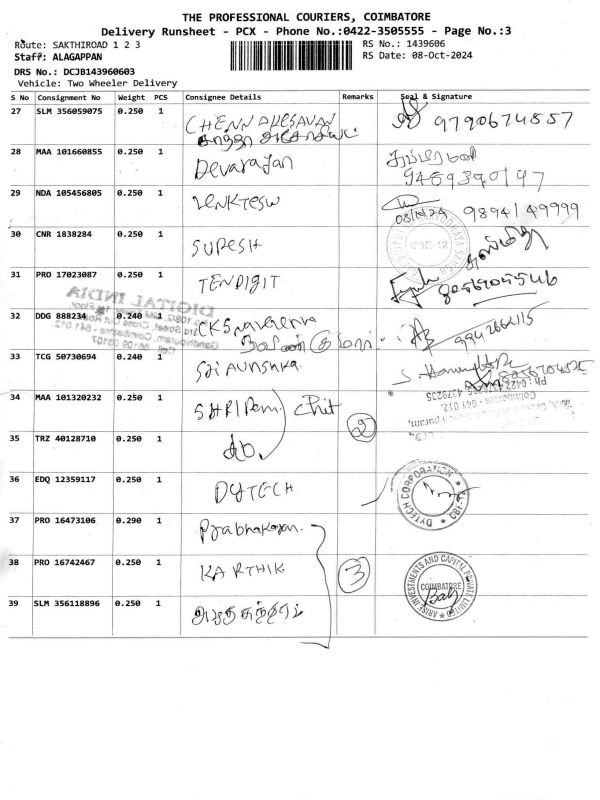 THE PROFESSIONAL COURIERS, COIMBATORE
Delivery Runsheet - PCX - Phone No.:0422-3505555 - Page No.:3
Route: SAKTHIROAD 1 2 3
RS No.: 1439606
Staff: ALAGAPPAN
RS Date: 08-Oct-2024
DRS No.: DCJB143960603
Vehicle: Two Wheeler Delivery
S No Consignment No Weight PCS Consignee Details Remarks Seal & Signature
27 SLM 356059075 0.250 1 CHENNAKESAVAN 9790674857
28 MAA 101660855 0.250 1 Devarajan
29 NDA 105456805 0.250 1 VENKTESW 9894149999
30 CNR 1838284 0.250 1 SURESH
31 PRO 17023087 0.250 1 TENDIGIT
DIGITAL INDIA
32 DDG 888234 0.240 1 CKS 9942662115
நவீன் குமார்
33 TCG 50730694 0.240 1 Sri
34 MAA 101320232 0.250 1 SHRI Ram Chit
2
35 TRZ 40128710 0.250 1 do
36 EDQ 12359117 0.250 1 DYTECH
DYTECH CORPORATION CBE
37 PRO 16473106 0.290 1 Prabhakaran
38 PRO 16742467 0.250 1 KARTHIK
3
ARISE INVESTMENTS AND CAPITAL PRIVATE LIMITED
COIMBATORE
39 SLM 356118896 0.250 1